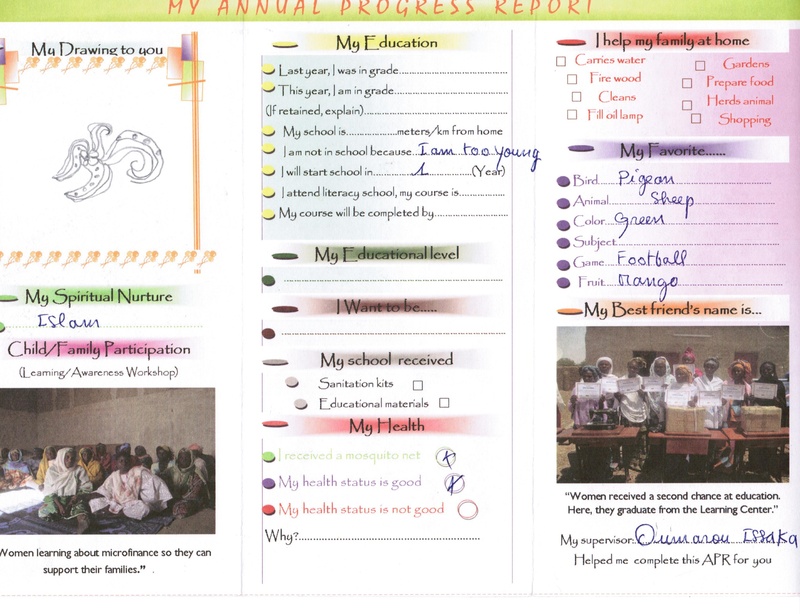 MY ANNUAL PROGRESS REPORT
My Drawing to you
My Spiritual Nurture
Islam
Child/Family Participation
(Learning/Awareness Workshop)
Women learning about microfinance so they can
support their families."
My Education
Last year, I was in grade
This year, I am in grade
(If retained, explain)
My school is meters/km from home
I am not in school because I am too young
I will start school in 1 (Year)
I attend literacy school, my course is
My course will be completed by
My Educational level
I Want to be.....
My school received
Sanitation kits
Educational materials
My Health
I received a mosquito net X
My health status is good X
My health status is not good
Why?
I help my family at home
Carries water
Gardens
Fire wood
Prepare food
Cleans
Herds animal
Fill oil lamp
Shopping
My Favorite......
Bird Pigeon
Animal Sheep
Color Green
Subject
Game Football
Fruit Mango
My Best friend's name is...
"Women received a second chance at education.
Here, they graduate from the Learning Center."
My supervisor: Oumarou ISSAKA
Helped me complete this APR for you